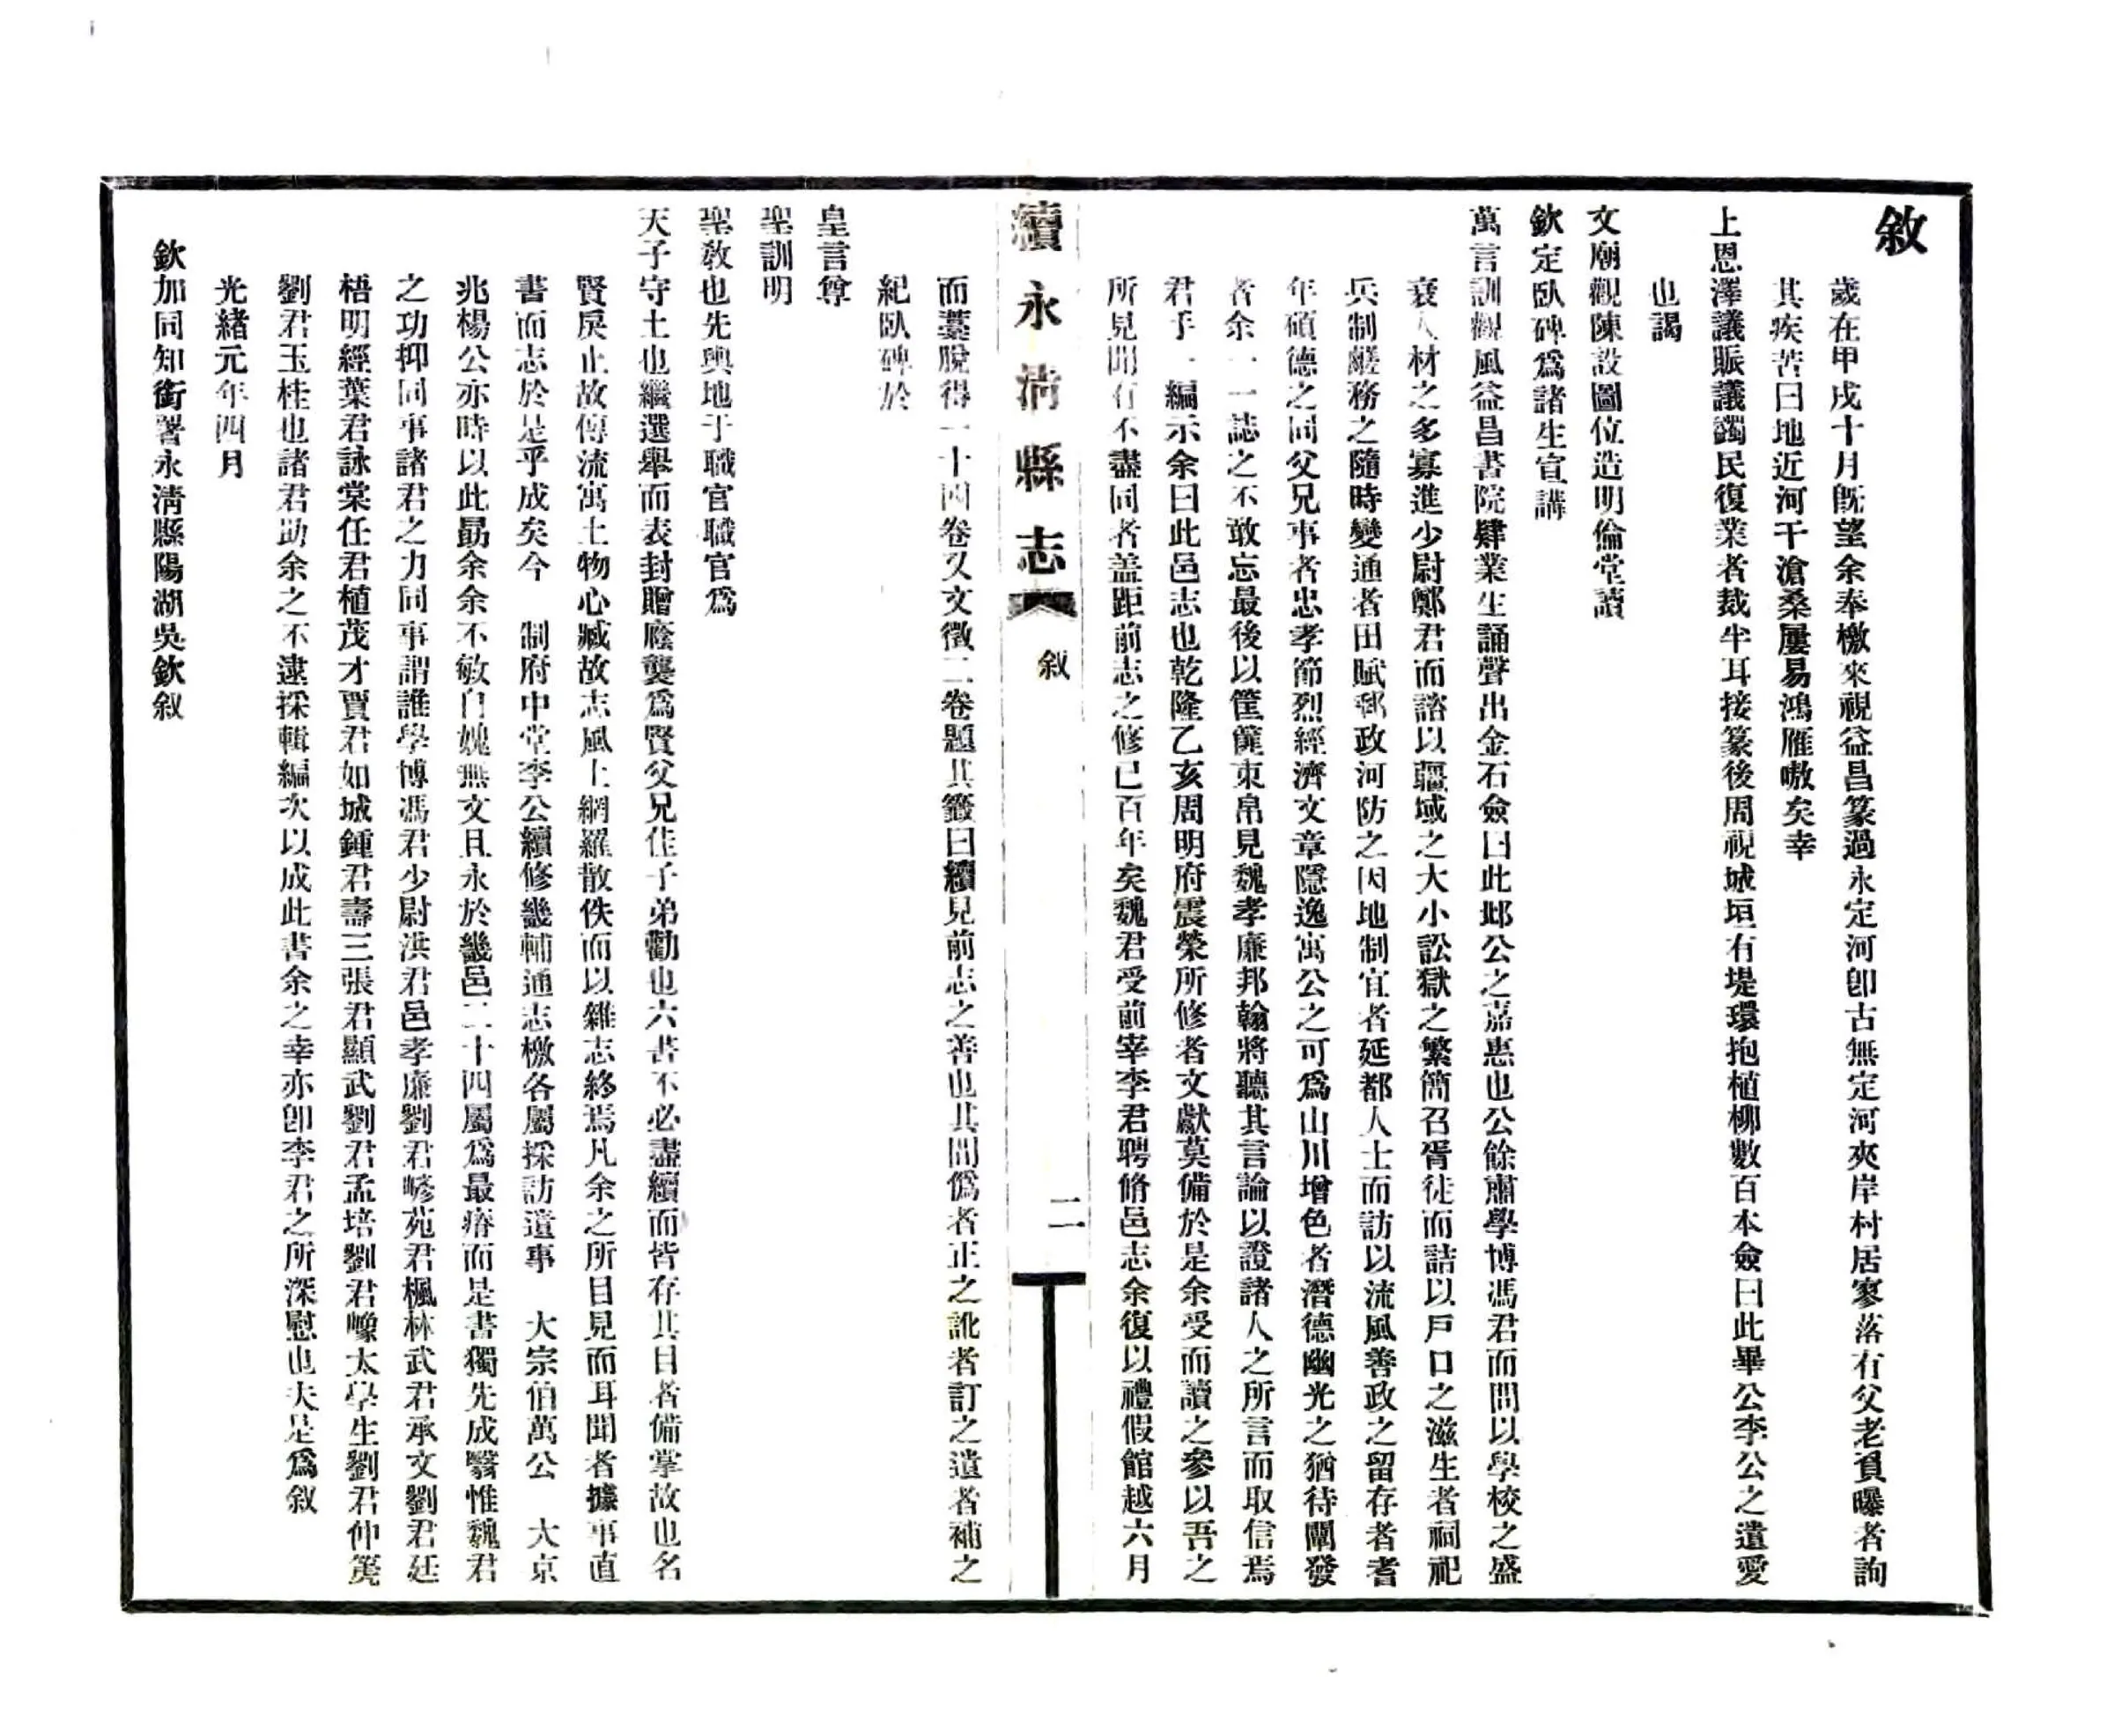 敘
歲在甲戌十月既望余奉檄來視益昌篆過永定河卽古無定河夾岸村居寥落有父老負曝者詢
其疾苦曰地近河干滄桑屢易鴻雁嗷矣幸
上恩澤議賑議蠲民復業者裁半耳接篆後周視城垣有堤環抱植柳數百本僉曰此畢公李公之遺愛
也謁
文廟觀陳設圖位造明倫堂讀
欽定臥碑爲諸生宣講
萬言訓觀風益昌書院肄業生誦聲出金石僉曰此邺公之嘉惠也公餘肅學博馮君而問以學校之盛
衰人材之多寡進少尉鄭君而諮以疆域之大小訟獄之繁簡召胥徒而詰以戶口之滋生者祠祀
兵制鹺務之隨時變通者田賦郵政河防之因地制宜者延都人士而訪以流風善政之留存者耆
年碩德之同父兄事者忠孝節烈經濟文章隱逸寓公之可爲山川增色者潛德幽光之猶待闡發
者余一一誌之不敢忘最後以筐篚束帛見魏孝廉邦翰將聽其言論以證諸人之所言而取信焉
君手一編示余曰此邑志也乾隆乙亥周明府震榮所修者文獻莫備於是余受而讀之參以吾之
所見聞有不盡同者盖距前志之修已百年矣魏君受前宰李君聘脩邑志余復以禮假館越六月
續永清縣志
敘
二
而藁脫得一十四卷又文徵二卷題其籤曰續見前志之善也其間僞者正之訛者訂之遺者補之
紀臥碑於
皇言尊
聖訓明
聖教也先輿地于職官職官爲
天子守土也繼選舉而表封贈廕襲爲賢父兄佳子弟勸也六書不必盡續而皆存其目者備掌故也名
賢戾止故傳流寓土物心臧故志風土網羅散佚而以雜志終焉凡余之所目見而耳聞者據事直
書而志於是乎成矣今 制府中堂李公續修畿輔通志檄各屬採訪遺事 大宗伯萬公 大京
兆楊公亦時以此勗余余不敏自媿無文且永於畿邑二十四屬爲最瘠而是書獨先成繄惟魏君
之功抑同事諸君之力同事謂誰學博馮君少尉洪君邑孝廉劉君嵺苑君楓林武君承文劉君廷
梧明經葉君詠棠任君植茂才賈君如城鍾君壽三張君顯武劉君孟培劉君㠖太學生劉君仲箎
劉君玉桂也諸君助余之不逮採輯編次以成此書余之幸亦卽李君之所深慰也夫是爲敘
光緒元年四月
欽加同知銜署永清縣陽湖吳欽敘